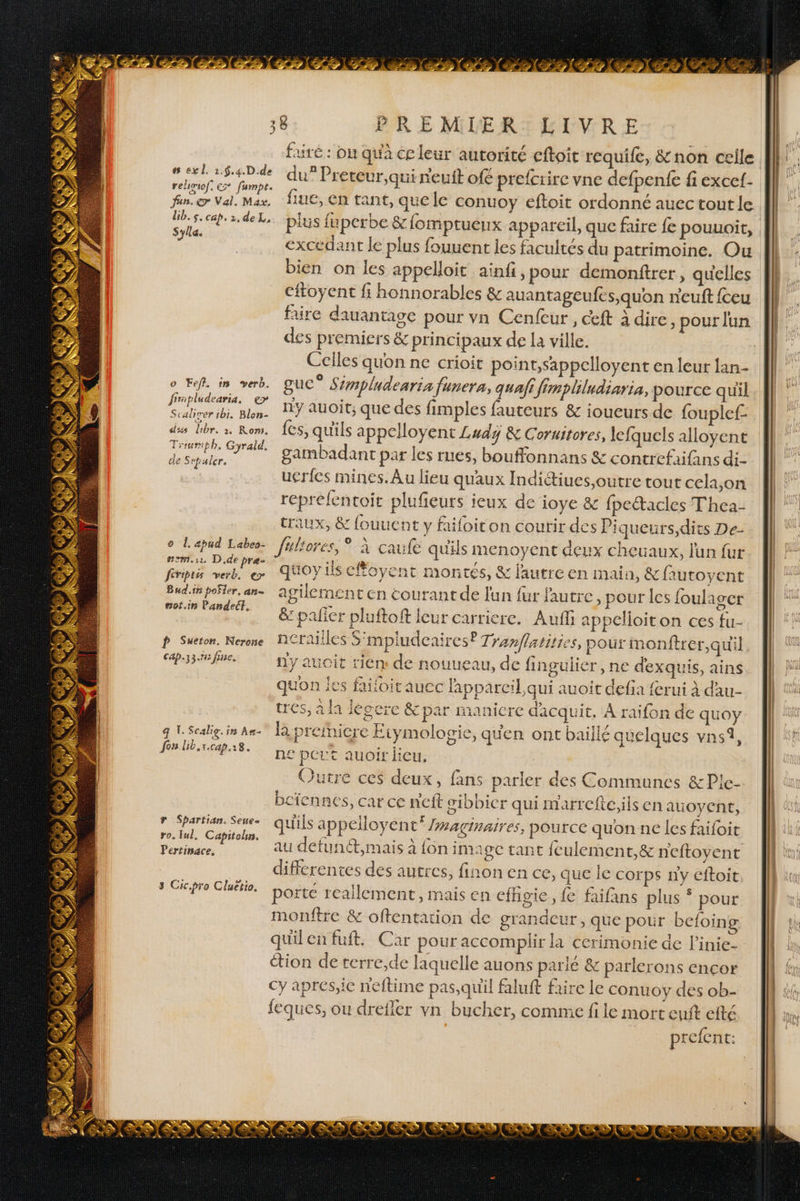 38 PREMIER LIVRE
faire : ou qu'à ce leur autorité eſtoit requiſe, & non celle
du n Preteur, qui n'euſt oſé preſcrire vne deſpenſe ſi exceſ-
ſiue, en tant, que le conuoy eſtoit ordonné auec tout le
plus ſuperbe & ſomptueux appareil, que faire ſe pouuoit,
excedant le plus ſouuent les facultés du patrimoine. Ou
bien on les appelloit ainſi, pour demonſtrer, qu'elles
eſtoyent ſi honnorables & auantageuſes, qu'on n'euſt ſceu
faire dauantage pour vn Cenſeur, c'eſt à dire, pour l'un
des premiers & principaux de la ville.
Celles qu'on ne crioit point, s'appelloyent en leur lan-
gue o Simpludearia funera, quaſi ſimpliludiaria, pource qu'il
n'y auoit, que des ſimples ſauteurs & ioueurs de ſoupleſ-
ſes, qu'ils appelloyent Ludy & Coruitores, leſquels alloyent
gambadant par les rues, bouffonnans & contrefaiſans di-
uerſes mines. Au lieu qu'aux Indictiues, outre tout cela, on
repreſentoit pluſieurs ieux de ioye & ſpectacles Thea-
traux, & ſouuent y faiſoit on courir des Piqueurs, dits De-
ſultores, o à cauſe qu'ils menoyent deux cheuaux, l'un ſur
quoy ils eſtoyent montés, & l'autre en main, & ſautoyent
agilement en courant de l'un ſur l'autre, pour les ſoulager
& paſſer pluſtoſt leur carriere. Auſſi appelloit on ces fu-
nerailles Simpludeaires p Tranſlatities, pour monſtrer, qu'il
n'y auoit rien de nouueau, de ſingulier, ne d'exquis, ains
qu'on les faiſoit auec l'appareil, qui auoit deſia ſerui à d'au-
tres, à la legere & par maniere d'acquit. A raiſon de quoy
la premiere Etymologie, qu'en ont baillé quelques vns q,
ne peut auoir lieu.
Outre ces deux, ſans parler des Communes & Ple-
beiennes, car ce n'eſt gibbier qui m'arreſte, ils en auoyent,
qu'ils appelloyent r Imaginaires, pource qu'on ne les faiſoit
au defunct, mais à ſon image tant ſeulement, & n'eſtoyent
differentes des autres, ſinon en ce, que le corps n'y eſtoit
porté reallement, mais en effigie, ſe faiſans plus s pour
monſtre & oſtentation de grandeur, que pour beſoing
qu'il en fuſt. Car pour accomplir la cerimonie de l'inie-
ction de terre, de laquelle auons parlé & parlerons encor
cy apres, ie n'eſtime pas, qu'il faluſt faire le conuoy des ob-
ſeques, ou dreſſer vn bucher, comme ſi le mort euſt eſté
preſent:
n ex l. 1.§.4.D.de
religioſ. & ſumpt.
fun. & Val. Max.
lib. 5. cap. 2. de L.
Sylla.
o Feſt. in verb.
ſimpludearia, &
Scaliger ibi. Blon-
dus libr. 2. Rom.
Triumph. Gyrald.
de Sepulcr.
o l. apud Labeo-
nem. 11. D.de præ-
ſcriptis verb. &
Bud. in poſter. an-
not. in Pandect.
p Sueton. Nerone
cap. 33. in fine.
q I. Scalig. in Au-
ſon. lib. 1. cap. 28.
r Spartian. Seue-
ro, Iul. Capitolin.
Pertinace.
s Cic. pro Cluétio.